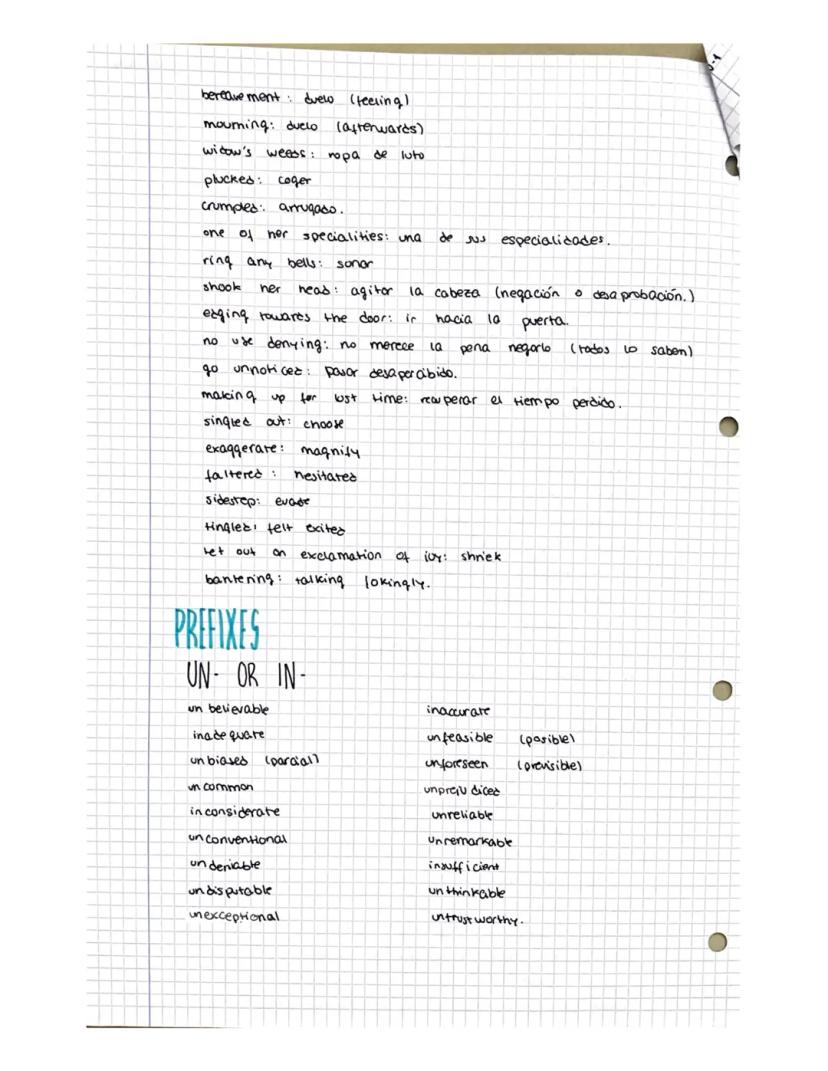 bereavement: duelo (feeling)
mourning: duelo (afterwards)
widow's weeds: ropa de luto
plucked: coger
crumpled: arrugado.
one of her specialities: una de sus especialidades.
ring any bells: sonar
shook her head: agitar la cabeza (negación o desaprobación.)
edging towards the door: ir hacia la puerta.
no use denying: no merece la pena negarlo (todos lo saben)
go unnoticed: pasar desapercibido.
making up for lost time: recuperar el tiempo perdido.
singled out: choose
exaggerate: magnify
faltered: hesitated
sidestep: evade
tingled: felt exited
let out an exclamation of joy: shriek
bantering: talking jokingly.
PREFIXES
UN- OR IN-
unbelievable inaccurate
inadequate unfeasible (posible)
unbiased (parcial) unforeseen (previsible)
uncommon unprejudiced
inconsiderate unreliable
unconventional unremarkable
undeniable insufficient
undisputable unthinkable
unexceptional untrustworthy.